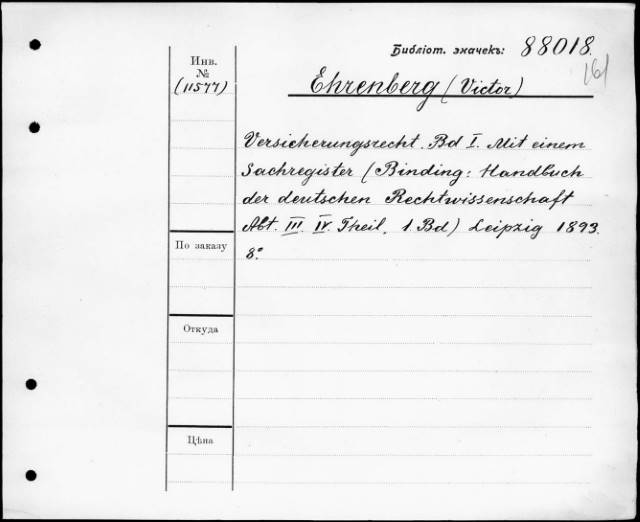 Библіот. значекъ: 88018.
161
Инв.
№
(11577)
Ehrenberg (Victor)
Versicherungsrecht. Bd I. Mit einem
Sachregister (Binding: Handbuch
der deutschen Rechtwissenschaft
Abt. III. IV. Theil, 1. Bd) Leipzig 1893.
8.°
По заказу
Откуда
Цѣна